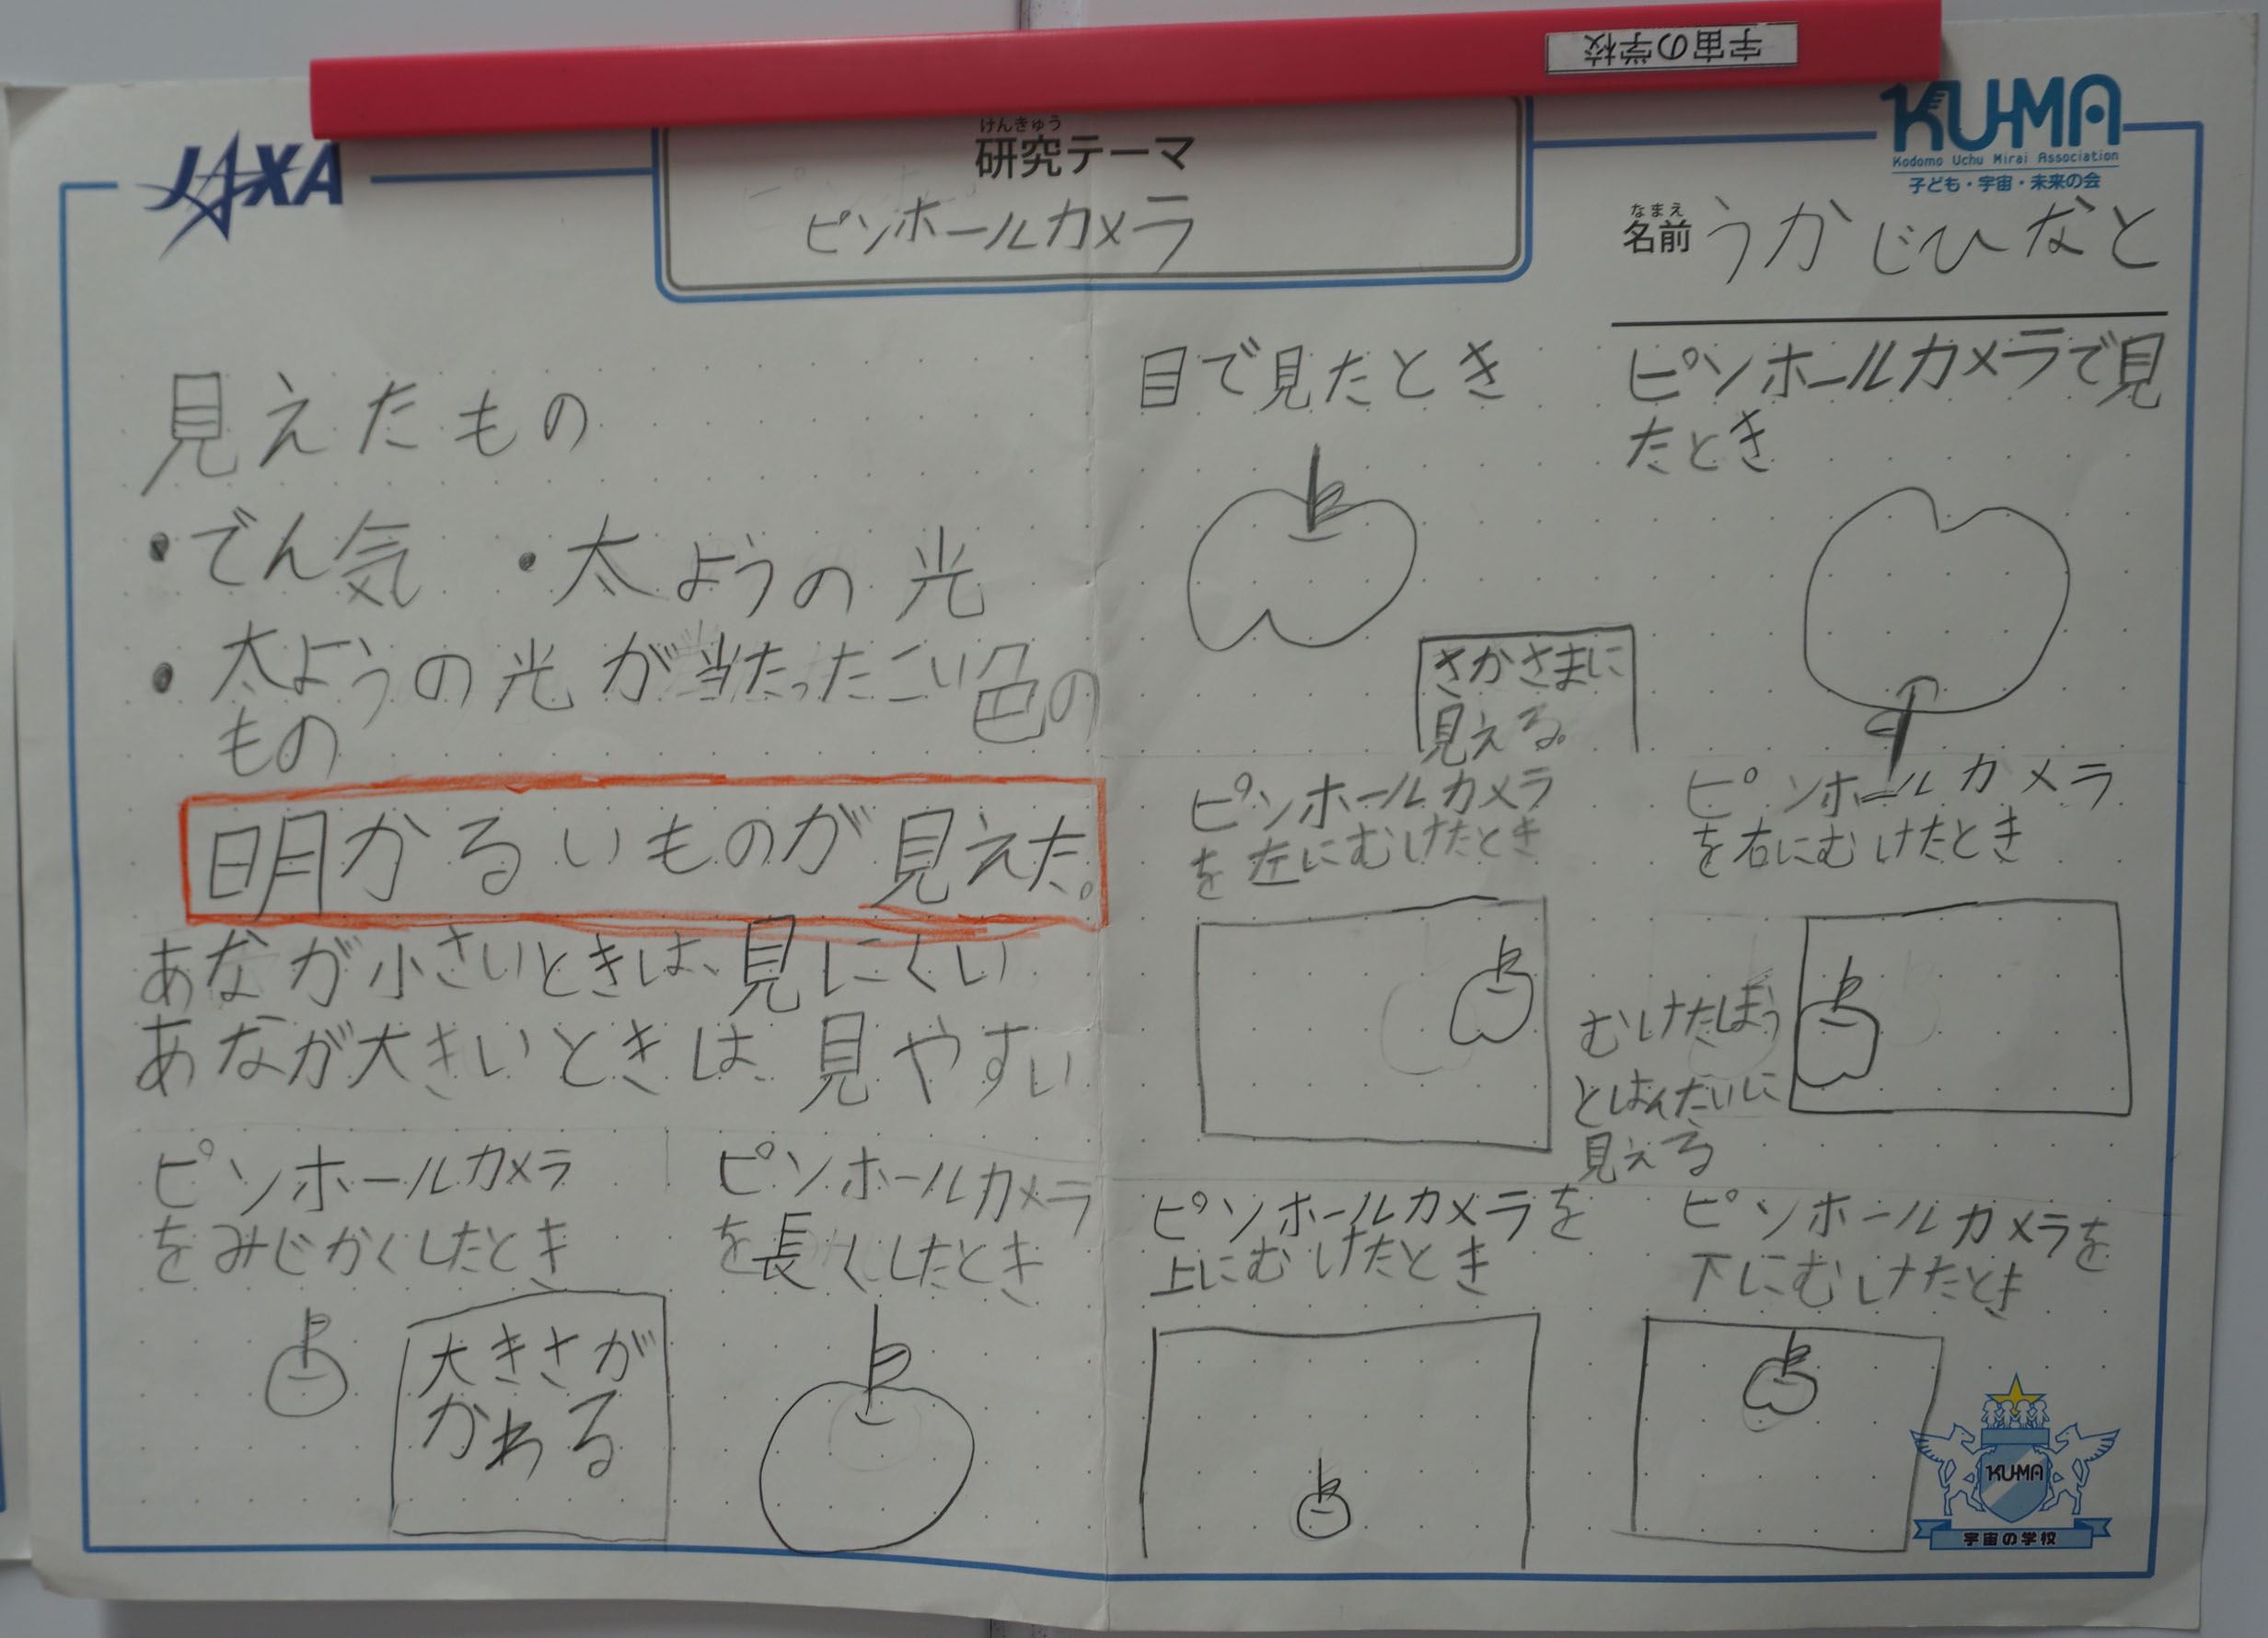 宇宙の学校
JAXA
けんきゅう
研究テーマ
ピンホールカメラ
KU-MA
Kodomo Uchu Mirai Association
子ども・宇宙・未来の会
なまえ
名前 うかじひなと
見えたもの
・でん気 ・太ようの光
・太ようの光が当たったこい色の
もの
明かるいものが見えた。
あなが小さいときは、見にくい
あなが大きいときは見やすい
ピンホールカメラ
をみじかくしたとき
大きさが
かわる
ピンホールカメラ
を長くしたとき
目で見たとき
ピンホールカメラで見
たとき
さかさまに
見える。
ピンホールカメラ
を左にむけたとき
ピンホールカメラ
を右にむけたとき
むけたほう
とはんたいに
見える
ピンホールカメラを
上にむけたとき
ピンホールカメラを
下にむけたとき
KU-MA
宇宙の学校